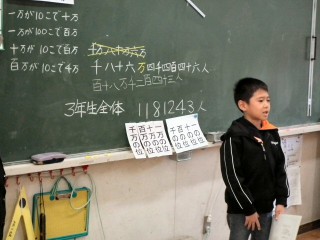 一万が10こで十万
一万が100こで百万
十万が10こで百万
百万が10こで千万
千万八十六万
千八十六万四千四百四十六人
百十八万千二百四十三人
3年生全体 1181243人
千万の位
百万の位
十万の位
一万の位
千の位
百の位
十の位
一の位